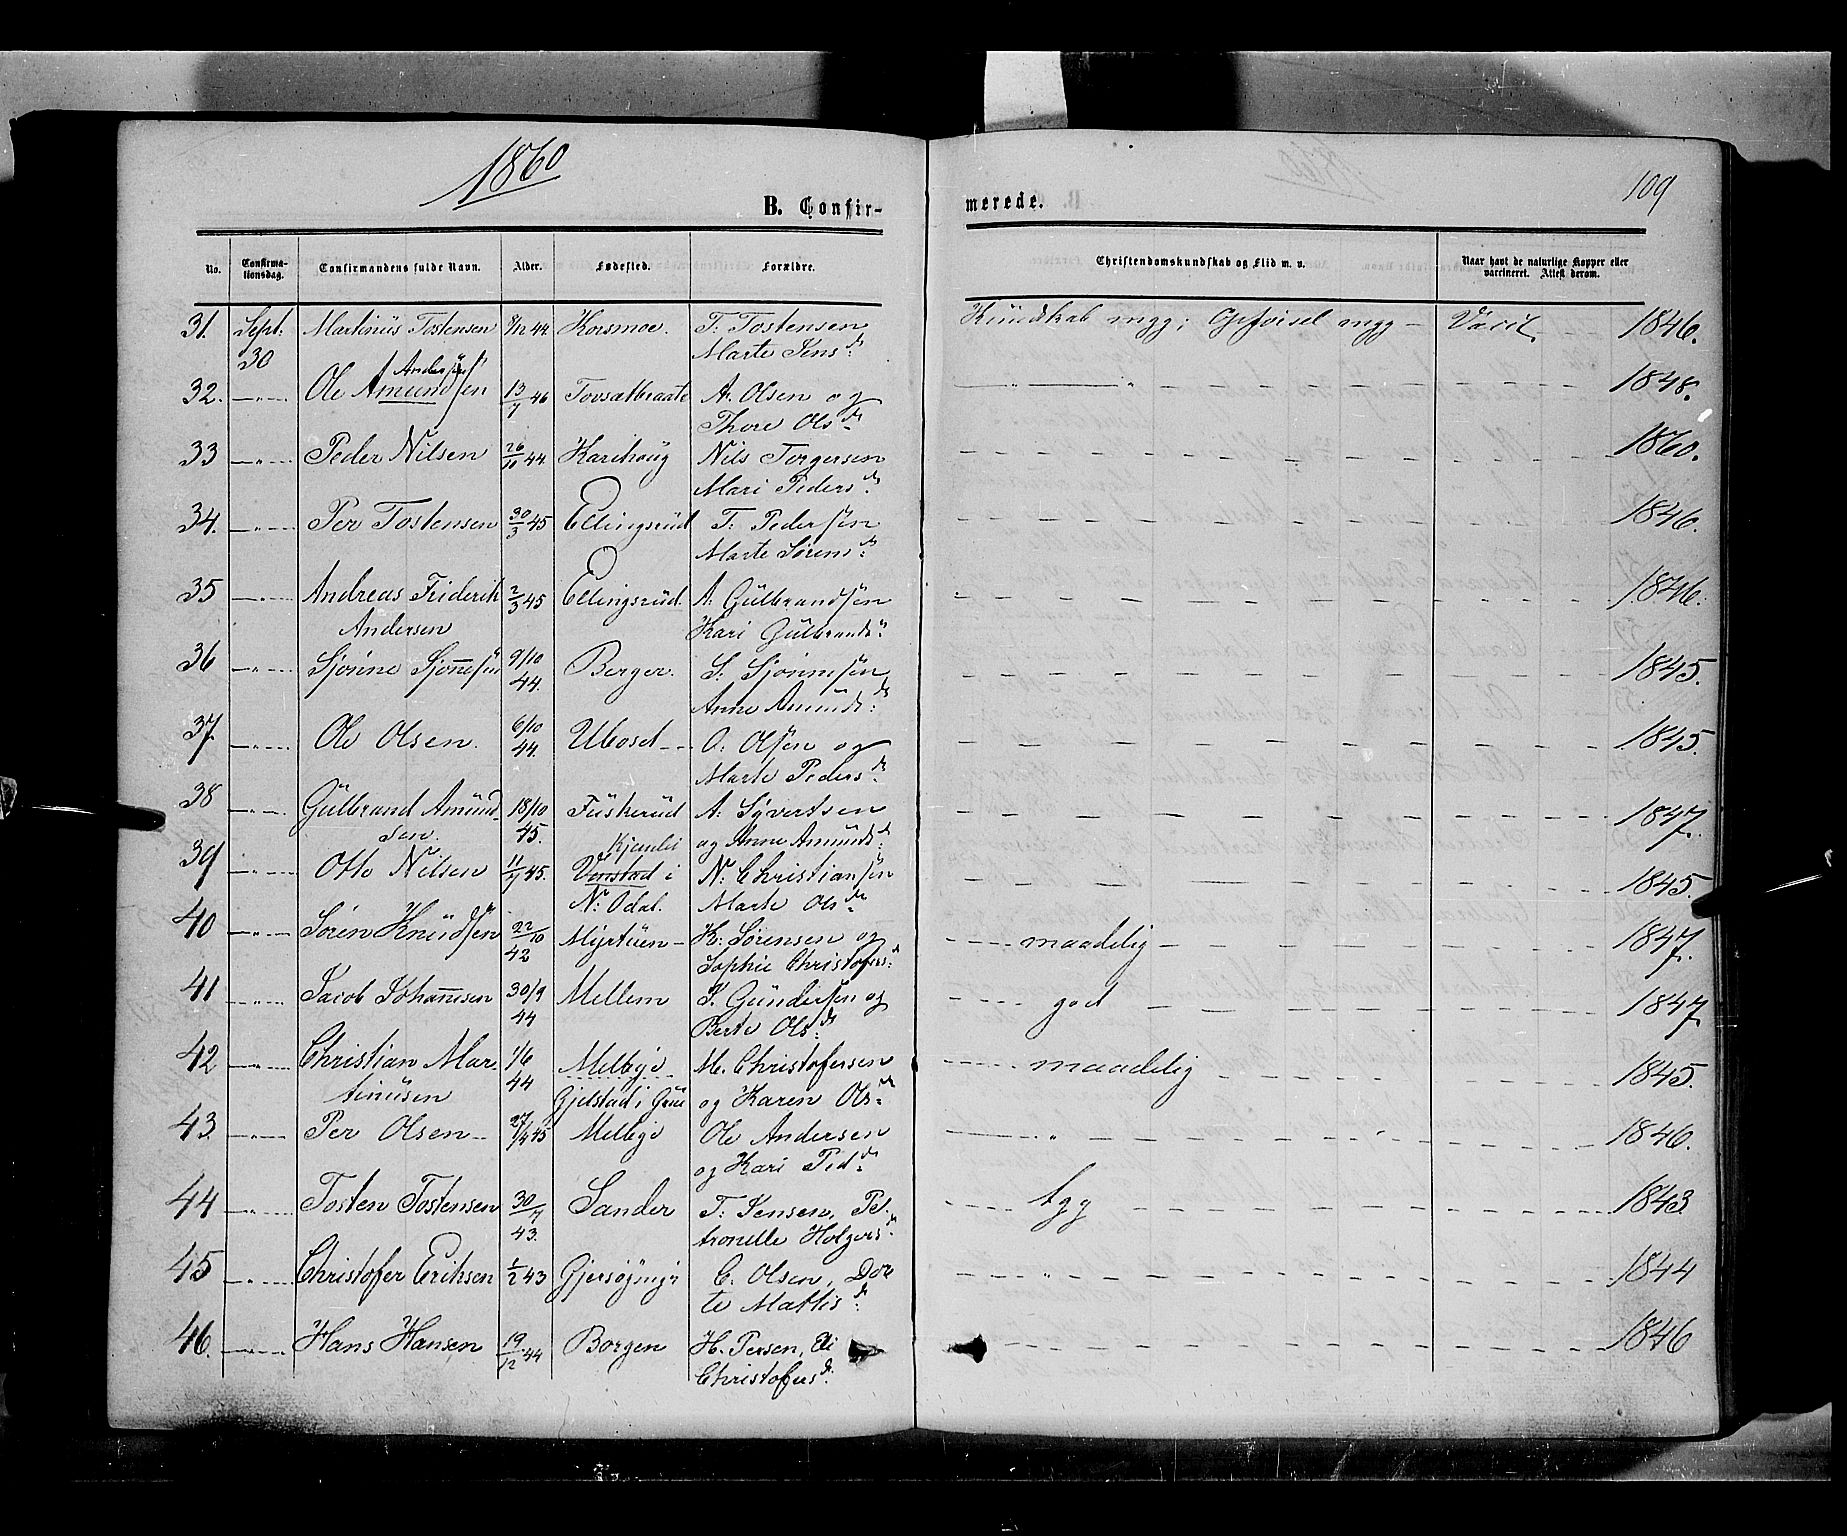 1860
109
B. Confir-
merede.
No. Confirma-tionsdag. Confirmandens fulde Navn. Alder. Fødested. Forældre. Christendomskundskab og Flid m. v. Naar havt de naturlige Kopper eller vaccineret. Attest derom.
31. Sept: Martinus Tostensen 8/12 44 Korsmoe. T. Tostensen Kundskab mgg; Opførsel mgg – Vacc. 1846.
30 Marte Jens d:
Andersen
32. — " — Ole Amundsen 13/7 46 Tovsætbraate A. Olsen og — " — " 1848.
Thore Ols d:
33 — " — Peder Nilsen 26/11 44 Karihoug Nils Torgersen 1860.
Mari Peders d:
34. — " — Per Tostensen 30/3 45 Ellingsrud T: Pedersen 1846.
Marte Sørens d:
35 — " — Andreas Friderik 2/3 45 Ellingsrud. A. Gulbrandsen 1846.
Andersen Kari Gulbrands:
36 — " — Sjønne Sjønnesen 9/10 Berger. S. Sjønnesen 1845.
44. Anne Amunds d:
37 — " — Ole Olsen. 6/10 Ulvset O. Olsen og 1845.
44. Marte Peders d:
38 — " — Gulbrand Amund- 18/10 Fuskerud A. Syvertsen 1847.
sen. 45. og Anne Amunds d:
39 — " — Otto Nilsen 11/7 45. i N. Christiansen 1845.
N. Odal. Marte Ols d:
40 — " — Søren Knudsen 22/10 Myrtuen – K. Sørensen og maadelig 1847.
42 Sophie Christofers d:
41 — " — Jacob Johannesen 30/9 Mellem J. Gundersen og god 1847
44 Berte Ols d:
42 — " — Christian Mar- 1/6 Melbye M. Christofersen maadelig 1845.
tinusen 44 Gjelstad i Grue og Karen Ols d:
43. — " — Per Olsen – 27/4 45 Melbye Ole Andersen — " 1846.
og Kari Ped d:
44 — " — Tosten Tostensen 30/7 Sander T: Jensen, Pe- tgg 1843
43. tronelle Holgers d:
45 — " — Christofer Eriksen 1/2 43 Gjersøymyr E. Olsen, Dor- " 1844
te Mattis d:
46. — " — Hans Hansen 19/12 44 Borgen H. Persen, Eli 1846
Christofers d: